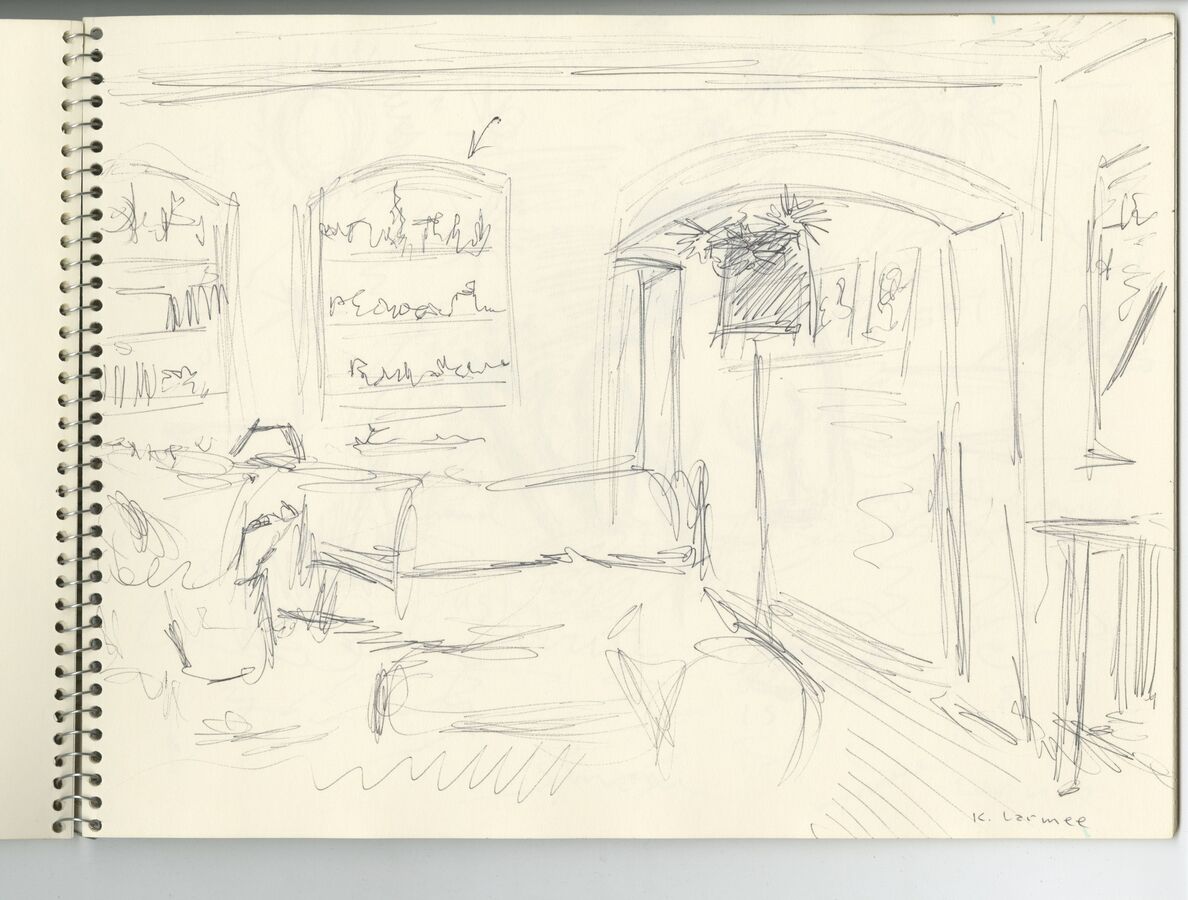 K. Larmee